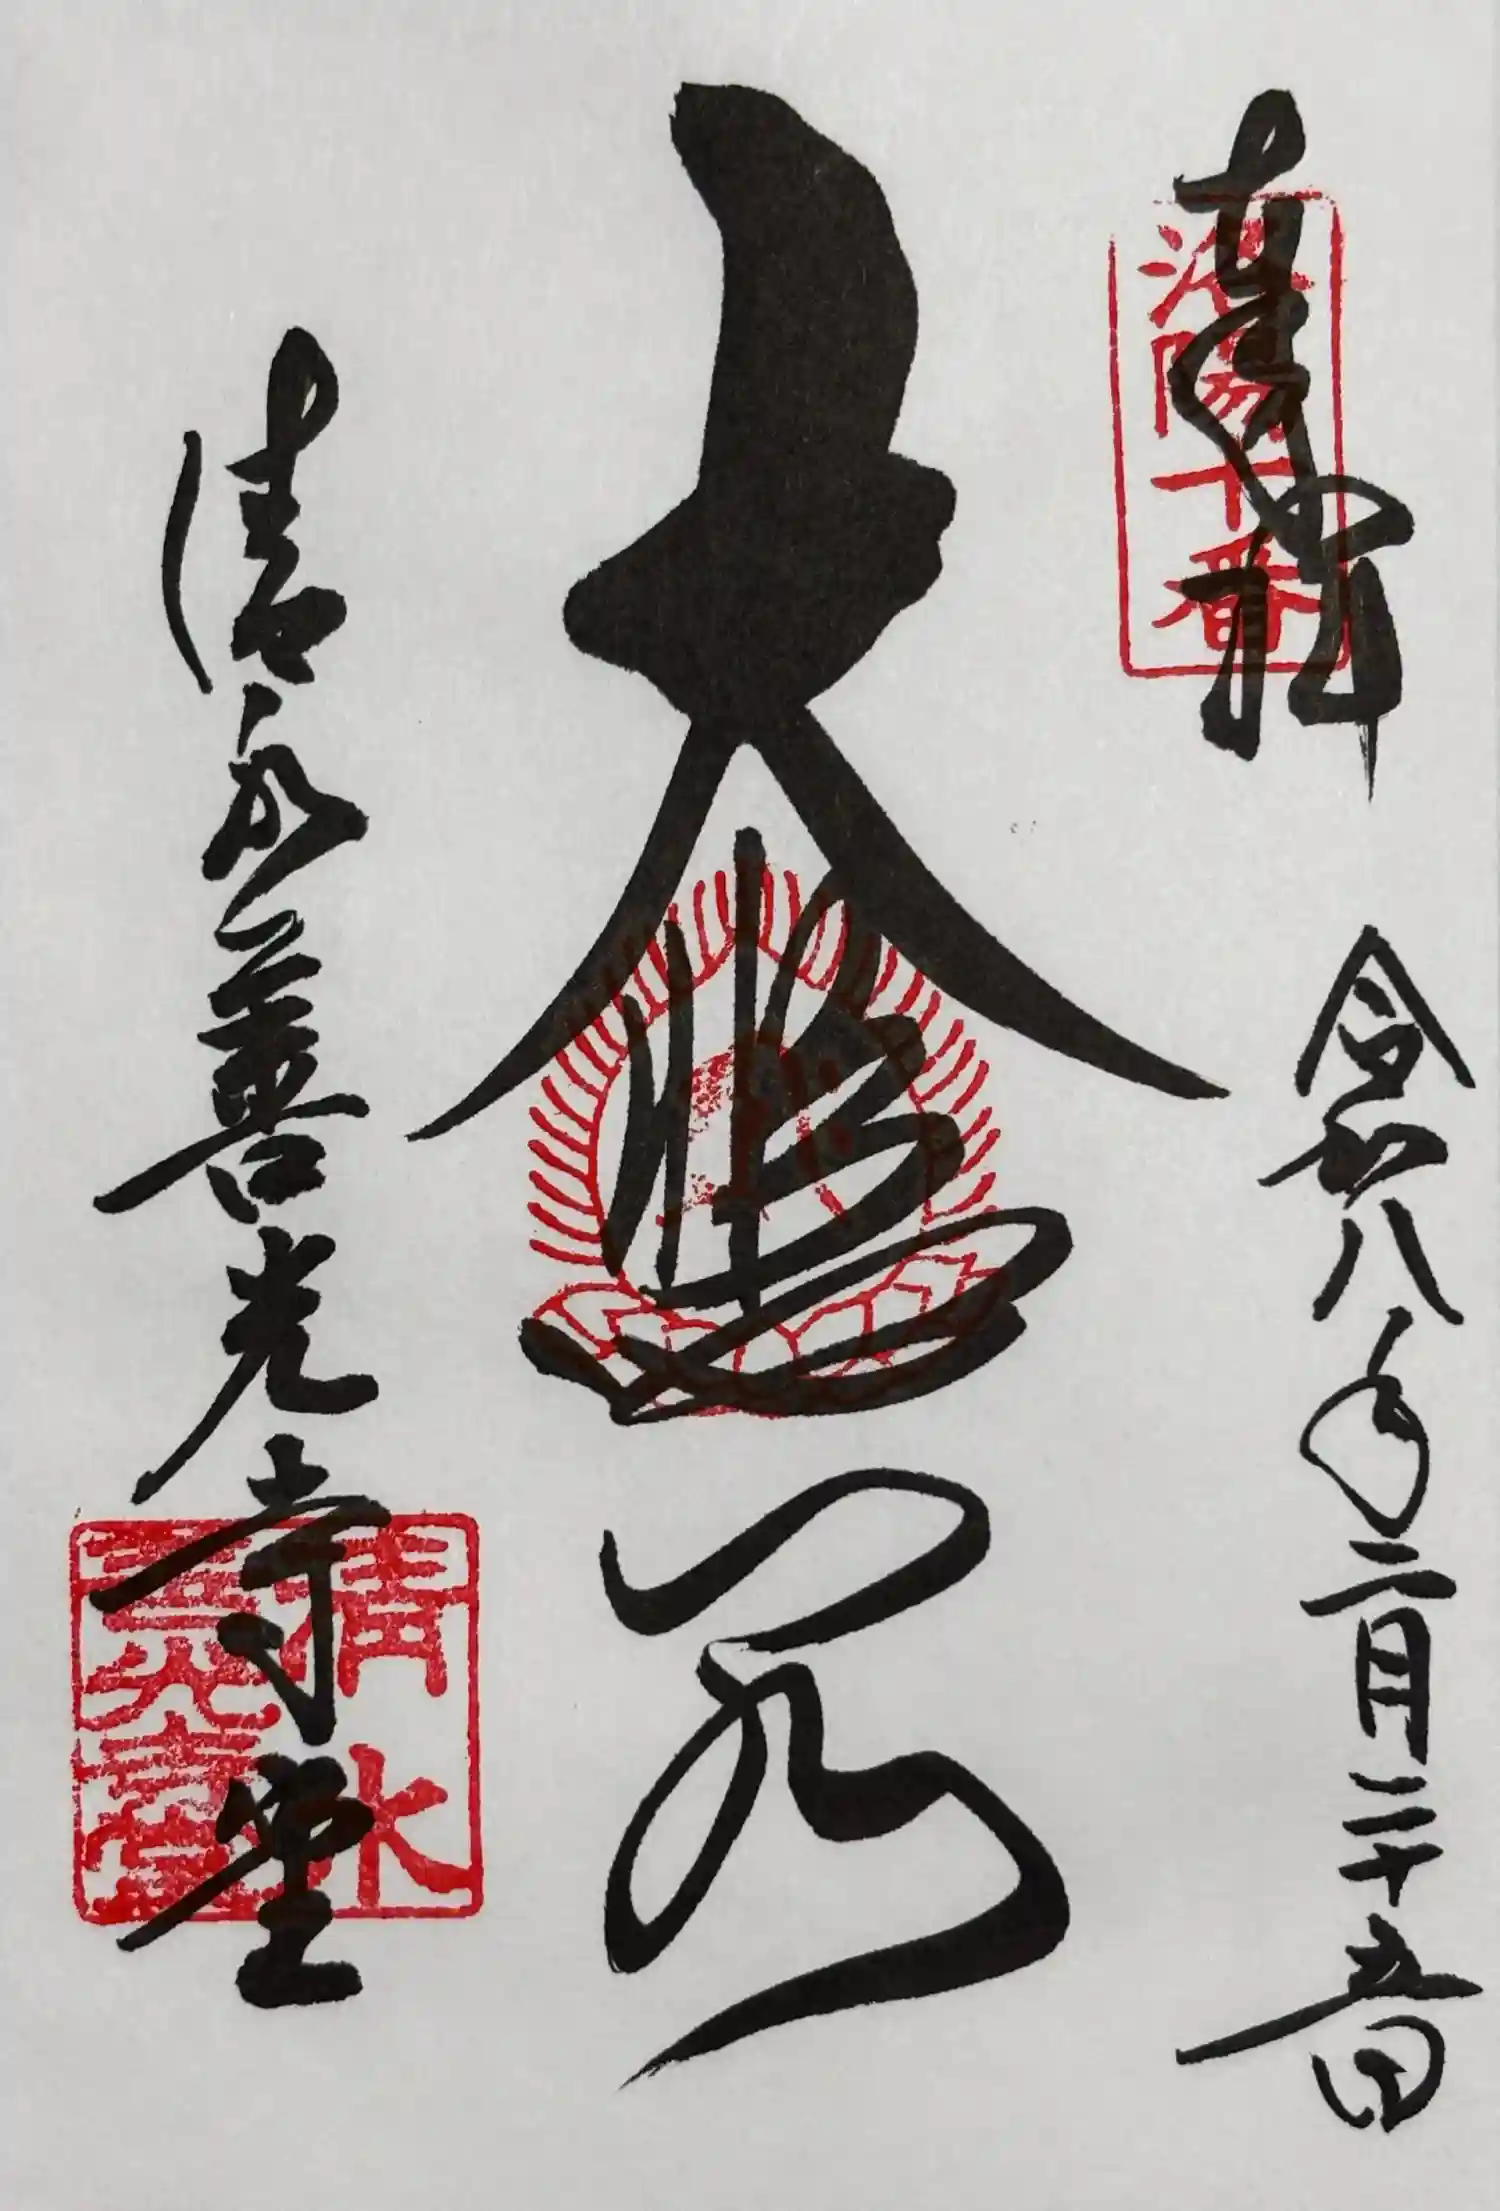 奉拝
洛陽十番
令和八年二月二十五日
大悲閣
清水善光寺堂
清水
善光寺堂